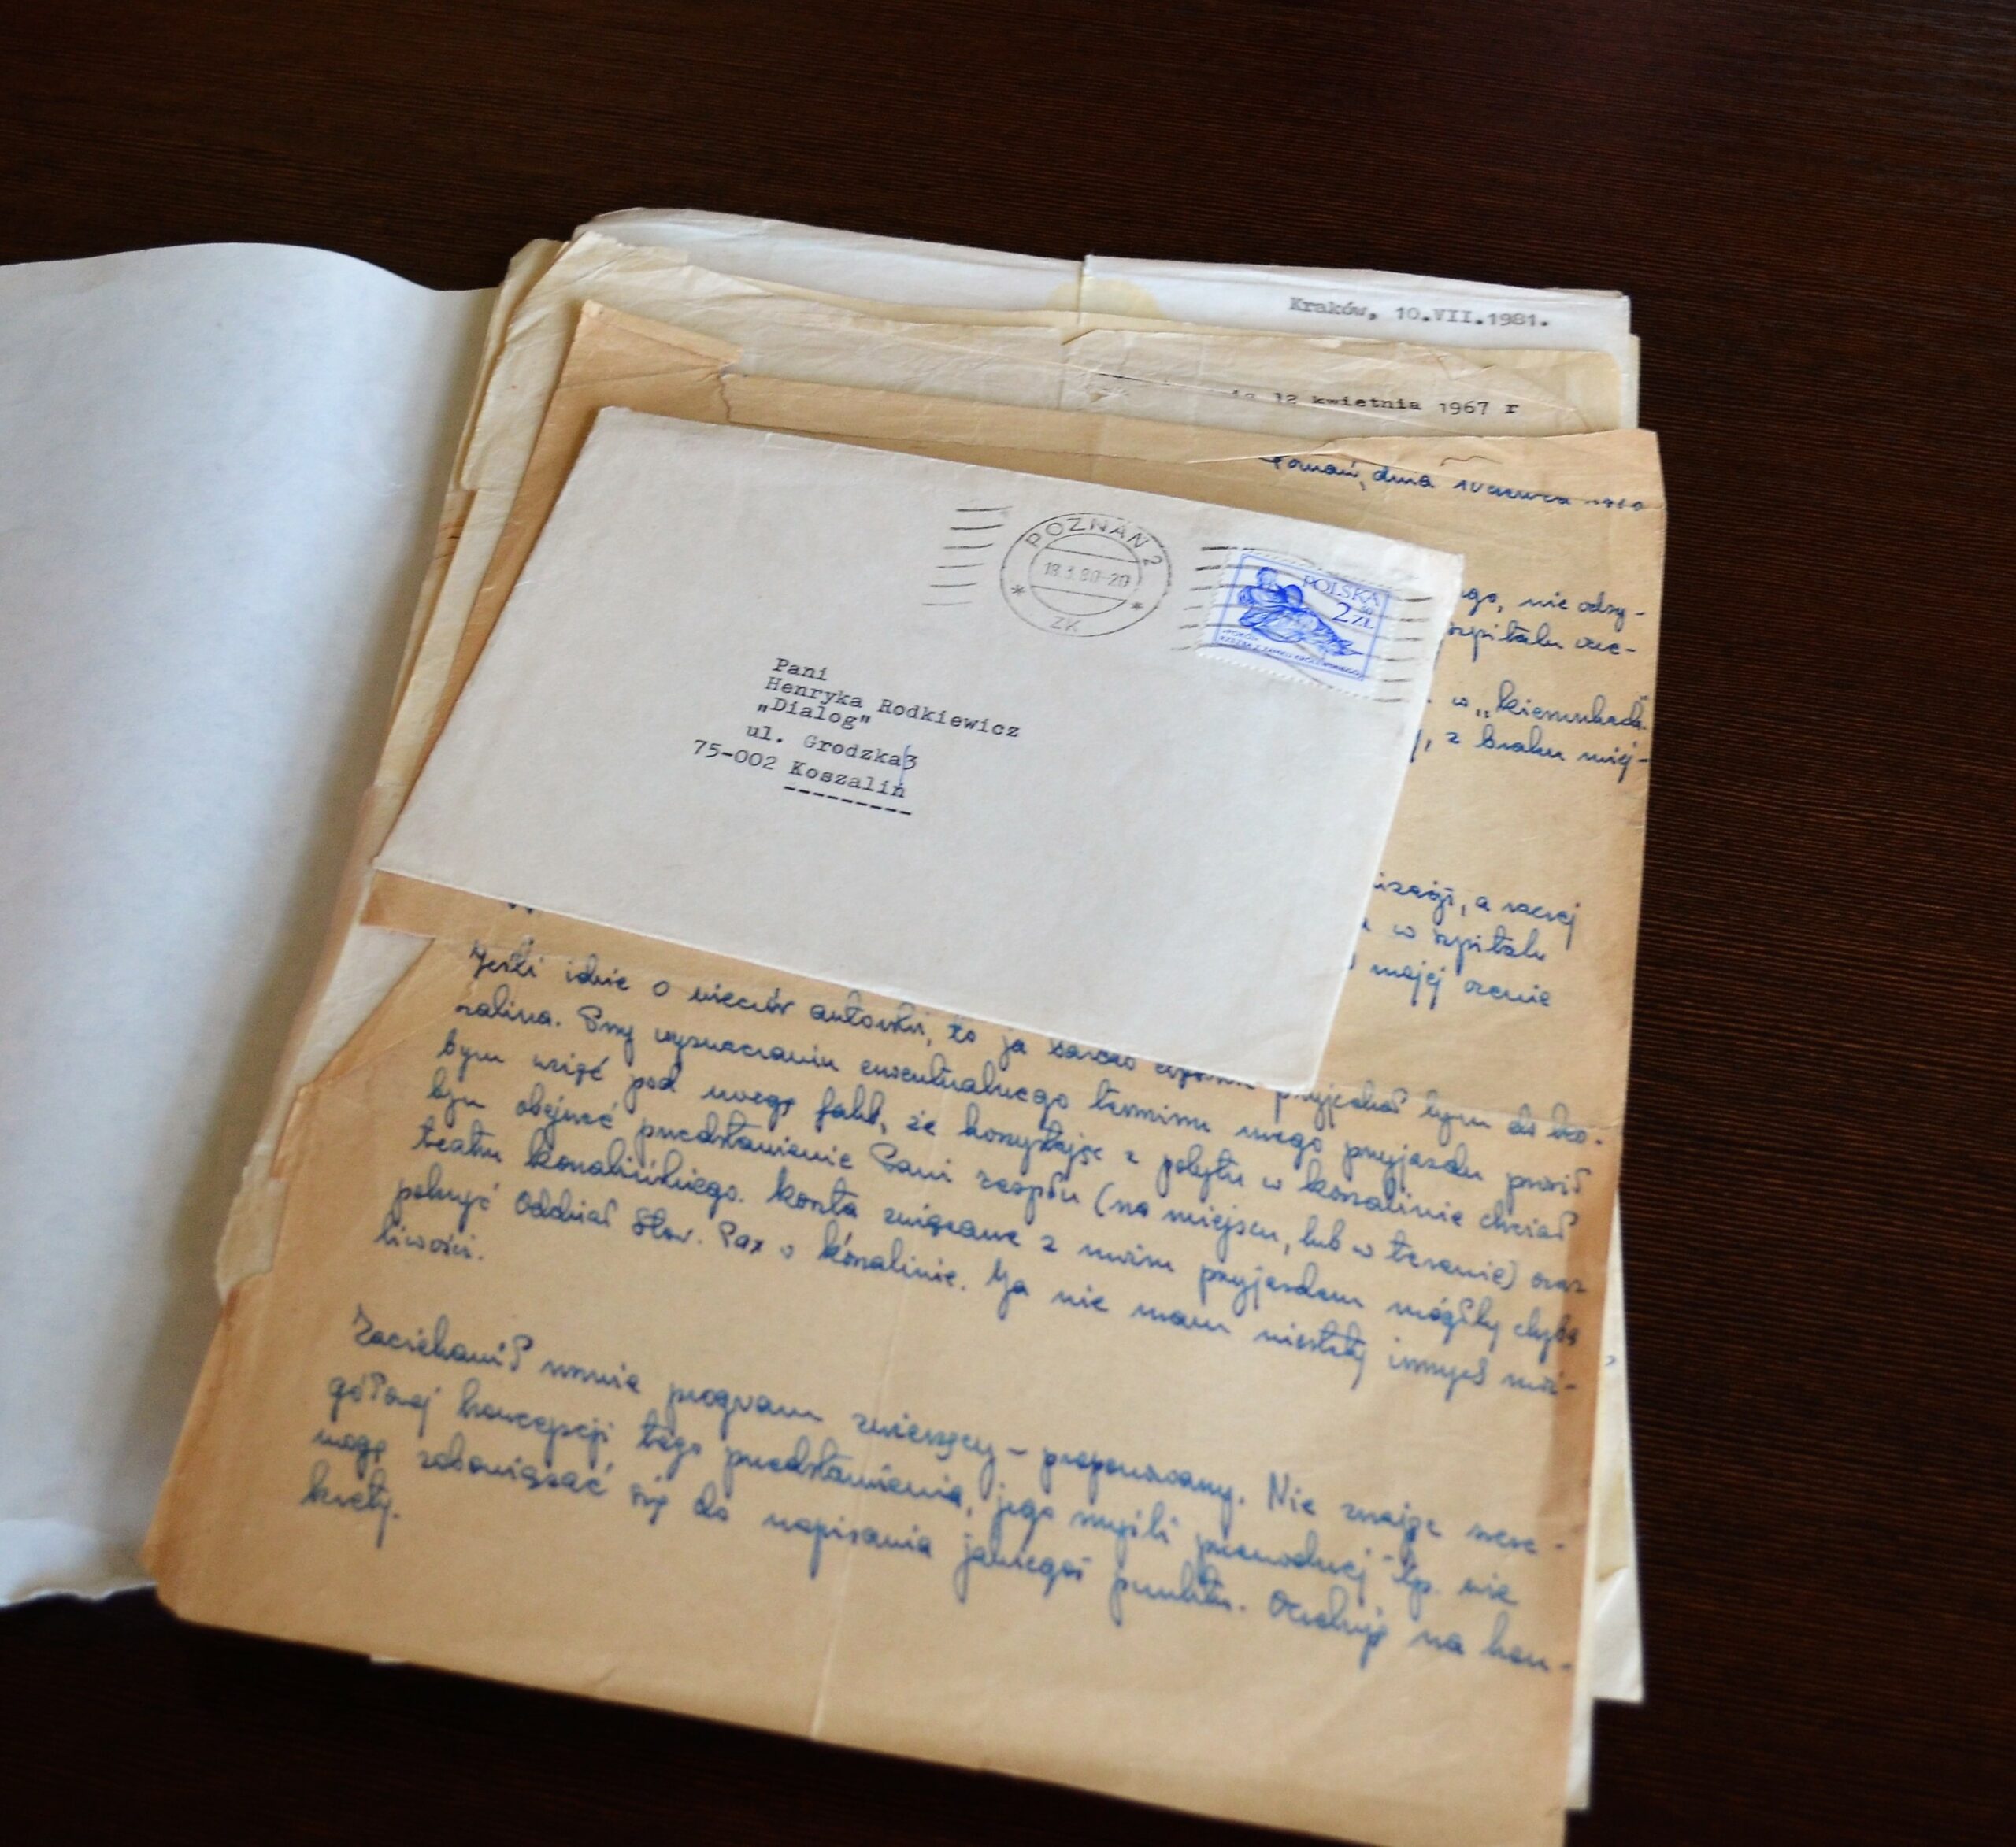 Kraków, 10.VII.1981.
12 kwietnia 1967 r
dnia 10 czerwca
POZNAŃ 2
18.3.80-20
ZK
POLSKA
2 ZŁ
RZEŹBA Z ZAMKU KRÓLEWSKIEGO
Pani
Henryka Rodkiewicz
"Dialog"
ul. Grodzka 3
75-002 Koszalin
nie odzy-
szpitalu
w „Kierunkach"
z braku miej-
a raczej
w szpitalu
mojej ocenie
Jeśli idzie o wieczór autorski, to ja bardzo chętnie przyjechał bym do Ko-
szalina. Przy wyznaczaniu ewentualnego terminu mego przyjazdu prosił
bym wziąć pod uwagę fakt, że korzystając z pobytu w Koszalinie chciał
bym obejrzeć przedstawienie Pani zespołu (na miejscu, lub w terenie) oraz
teatru koszalińskiego. Koszta związane z moim przyjazdem mógłby chyba
pokryć Oddział Stow. Pax w Koszalinie. Ja nie mam niestety innych moż-
liwości.
Zaciekawił mnie program zwierzęcy - proponowany. Nie znając szcze-
gółowej koncepcji tego przedstawienia, jego myśli przewodniej itp. nie
mogę zobowiązać się do napisania jakiegoś punktu. Oczekuję na kon-
krety.